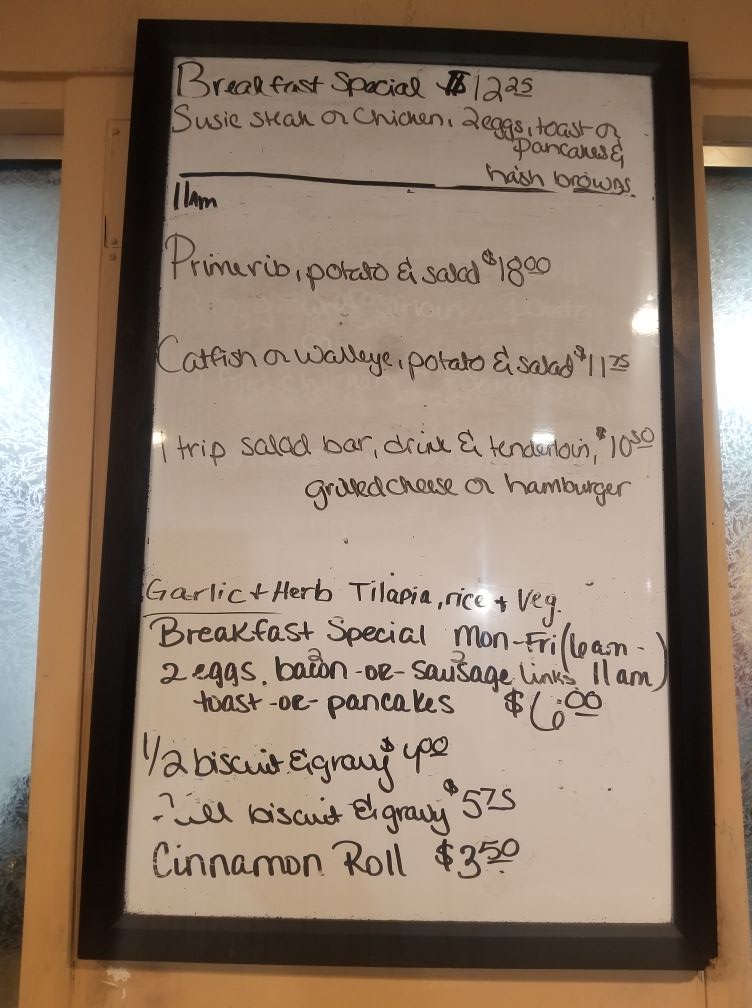 Breakfast Special $12.25
Susie steak or Chicken, 2 eggs, toast or
pancakes &
hash browns
11am
Prime rib, potato & salad $18.00
Catfish or Walleye, potato & salad $11.75
1 trip salad bar, drink & tenderloin, $10.50
grilled cheese or hamburger
Garlic + Herb Tilapia, rice + Veg.
Breakfast Special Mon-Fri (6am-
2 eggs, bacon -or- sausage links 11am)
2 2
toast -or- pancakes $6.00
1/2 biscuit & gravy $4.00
Full biscuit & gravy $5.75
Cinnamon Roll $3.50